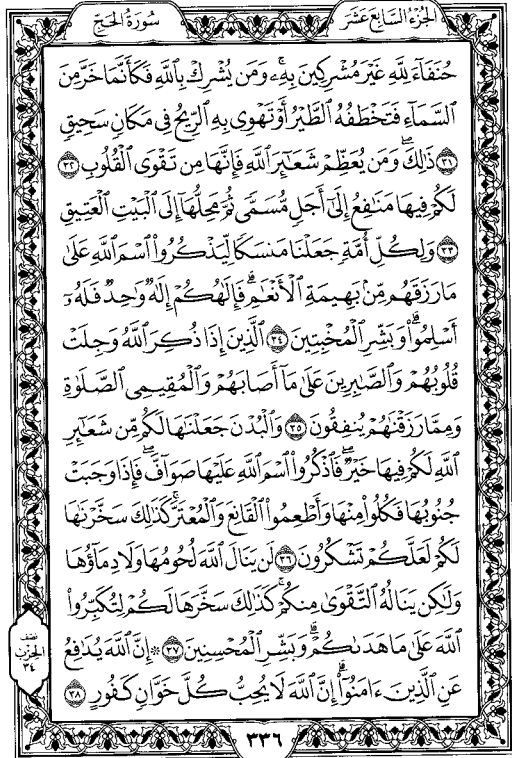 الجزء السابع عشر
سورة الحج
حُنَفَآءَ لِلَّهِ غَيۡرَ مُشۡرِكِينَ بِهِۦۚ وَمَن يُشۡرِكۡ بِٱللَّهِ فَكَأَنَّمَا خَرَّ مِنَ
ٱلسَّمَآءِ فَتَخۡطَفُهُ ٱلطَّيۡرُ أَوۡ تَهۡوِي بِهِ ٱلرِّيحُ فِي مَكَانٖ سَحِيقٖ
٣١ ذَٰلِكَۖ وَمَن يُعَظِّمۡ شَعَٰٓئِرَ ٱللَّهِ فَإِنَّهَا مِن تَقۡوَى ٱلۡقُلُوبِ ٣٢
لَكُمۡ فِيهَا مَنَٰفِعُ إِلَىٰٓ أَجَلٖ مُّسَمّٗى ثُمَّ مَحِلُّهَآ إِلَى ٱلۡبَيۡتِ ٱلۡعَتِيقِ
٣٣ وَلِكُلِّ أُمَّةٖ جَعَلۡنَا مَنسَكٗا لِّيَذۡكُرُواْ ٱسۡمَ ٱللَّهِ عَلَىٰ
مَا رَزَقَهُم مِّنۢ بَهِيمَةِ ٱلۡأَنۡعَٰمِۗ فَإِلَٰهُكُمۡ إِلَٰهٞ وَٰحِدٞ فَلَهُۥٓ
أَسۡلِمُواْۗ وَبَشِّرِ ٱلۡمُخۡبِتِينَ ٣٤ ٱلَّذِينَ إِذَا ذُكِرَ ٱللَّهُ وَجِلَتۡ
قُلُوبُهُمۡ وَٱلصَّٰبِرِينَ عَلَىٰ مَآ أَصَابَهُمۡ وَٱلۡمُقِيمِي ٱلصَّلَوٰةِ
وَمِمَّا رَزَقۡنَٰهُمۡ يُنفِقُونَ ٣٥ وَٱلۡبُدۡنَ جَعَلۡنَٰهَا لَكُم مِّن شَعَٰٓئِرِ
ٱللَّهِ لَكُمۡ فِيهَا خَيۡرٞۖ فَٱذۡكُرُواْ ٱسۡمَ ٱللَّهِ عَلَيۡهَا صَوَآفَّۖ فَإِذَا وَجَبَتۡ
جُنُوبُهَا فَكُلُواْ مِنۡهَا وَأَطۡعِمُواْ ٱلۡقَانِعَ وَٱلۡمُعۡتَرَّۚ كَذَٰلِكَ سَخَّرۡنَٰهَا
لَكُمۡ لَعَلَّكُمۡ تَشۡكُرُونَ ٣٦ لَن يَنَالَ ٱللَّهَ لُحُومُهَا وَلَا دِمَآؤُهَا
وَلَٰكِن يَنَالُهُ ٱلتَّقۡوَىٰ مِنكُمۡۚ كَذَٰلِكَ سَخَّرَهَا لَكُمۡ لِتُكَبِّرُواْ
ٱللَّهَ عَلَىٰ مَا هَدَىٰكُمۡۗ وَبَشِّرِ ٱلۡمُحۡسِنِينَ ٣٧ ۞ إِنَّ ٱللَّهَ يُدَٰفِعُ
عَنِ ٱلَّذِينَ ءَامَنُوٓاْۗ إِنَّ ٱللَّهَ لَا يُحِبُّ كُلَّ خَوَّانٖ كَفُورٍ ٣٨
نصف
الحزب
٣٤
٣٣٦